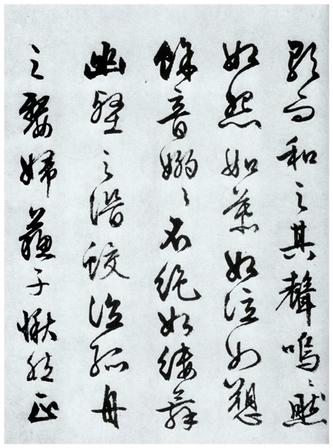 歌而和之其聲嗚〻然
如怨如慕如泣如愬
餘音嫋〻不絕如縷舞
幽壑之潛蛟泣孤舟
之嫠婦蘇子愀然正